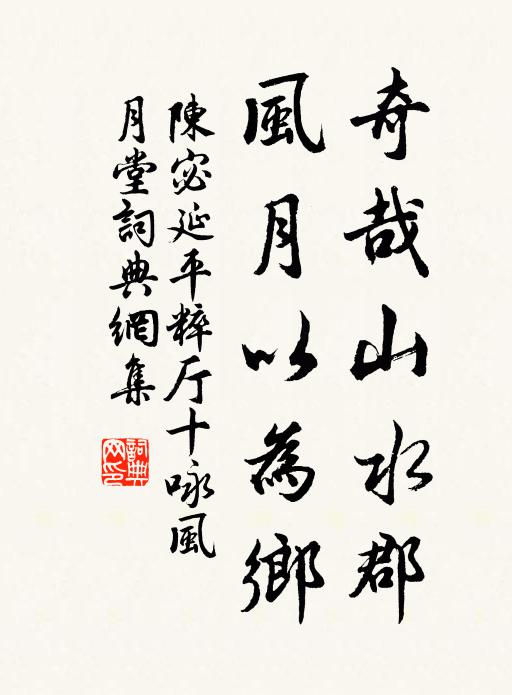 奇哉山水郡
風月以為鄉
陳宓延平粹厅十咏風
月堂詞典網集
詞典网印